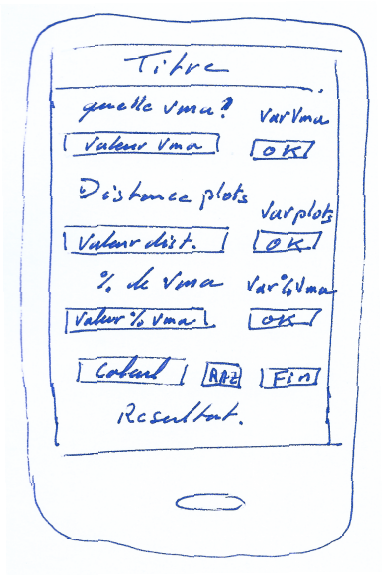 Titre
quelle vma? varVma
Valeur Vma OK
Distance plots varplots
Valeur dist. OK
% de Vma var%Vma
Valeur % Vma OK
Calcul RAZ Fin
Resultat.